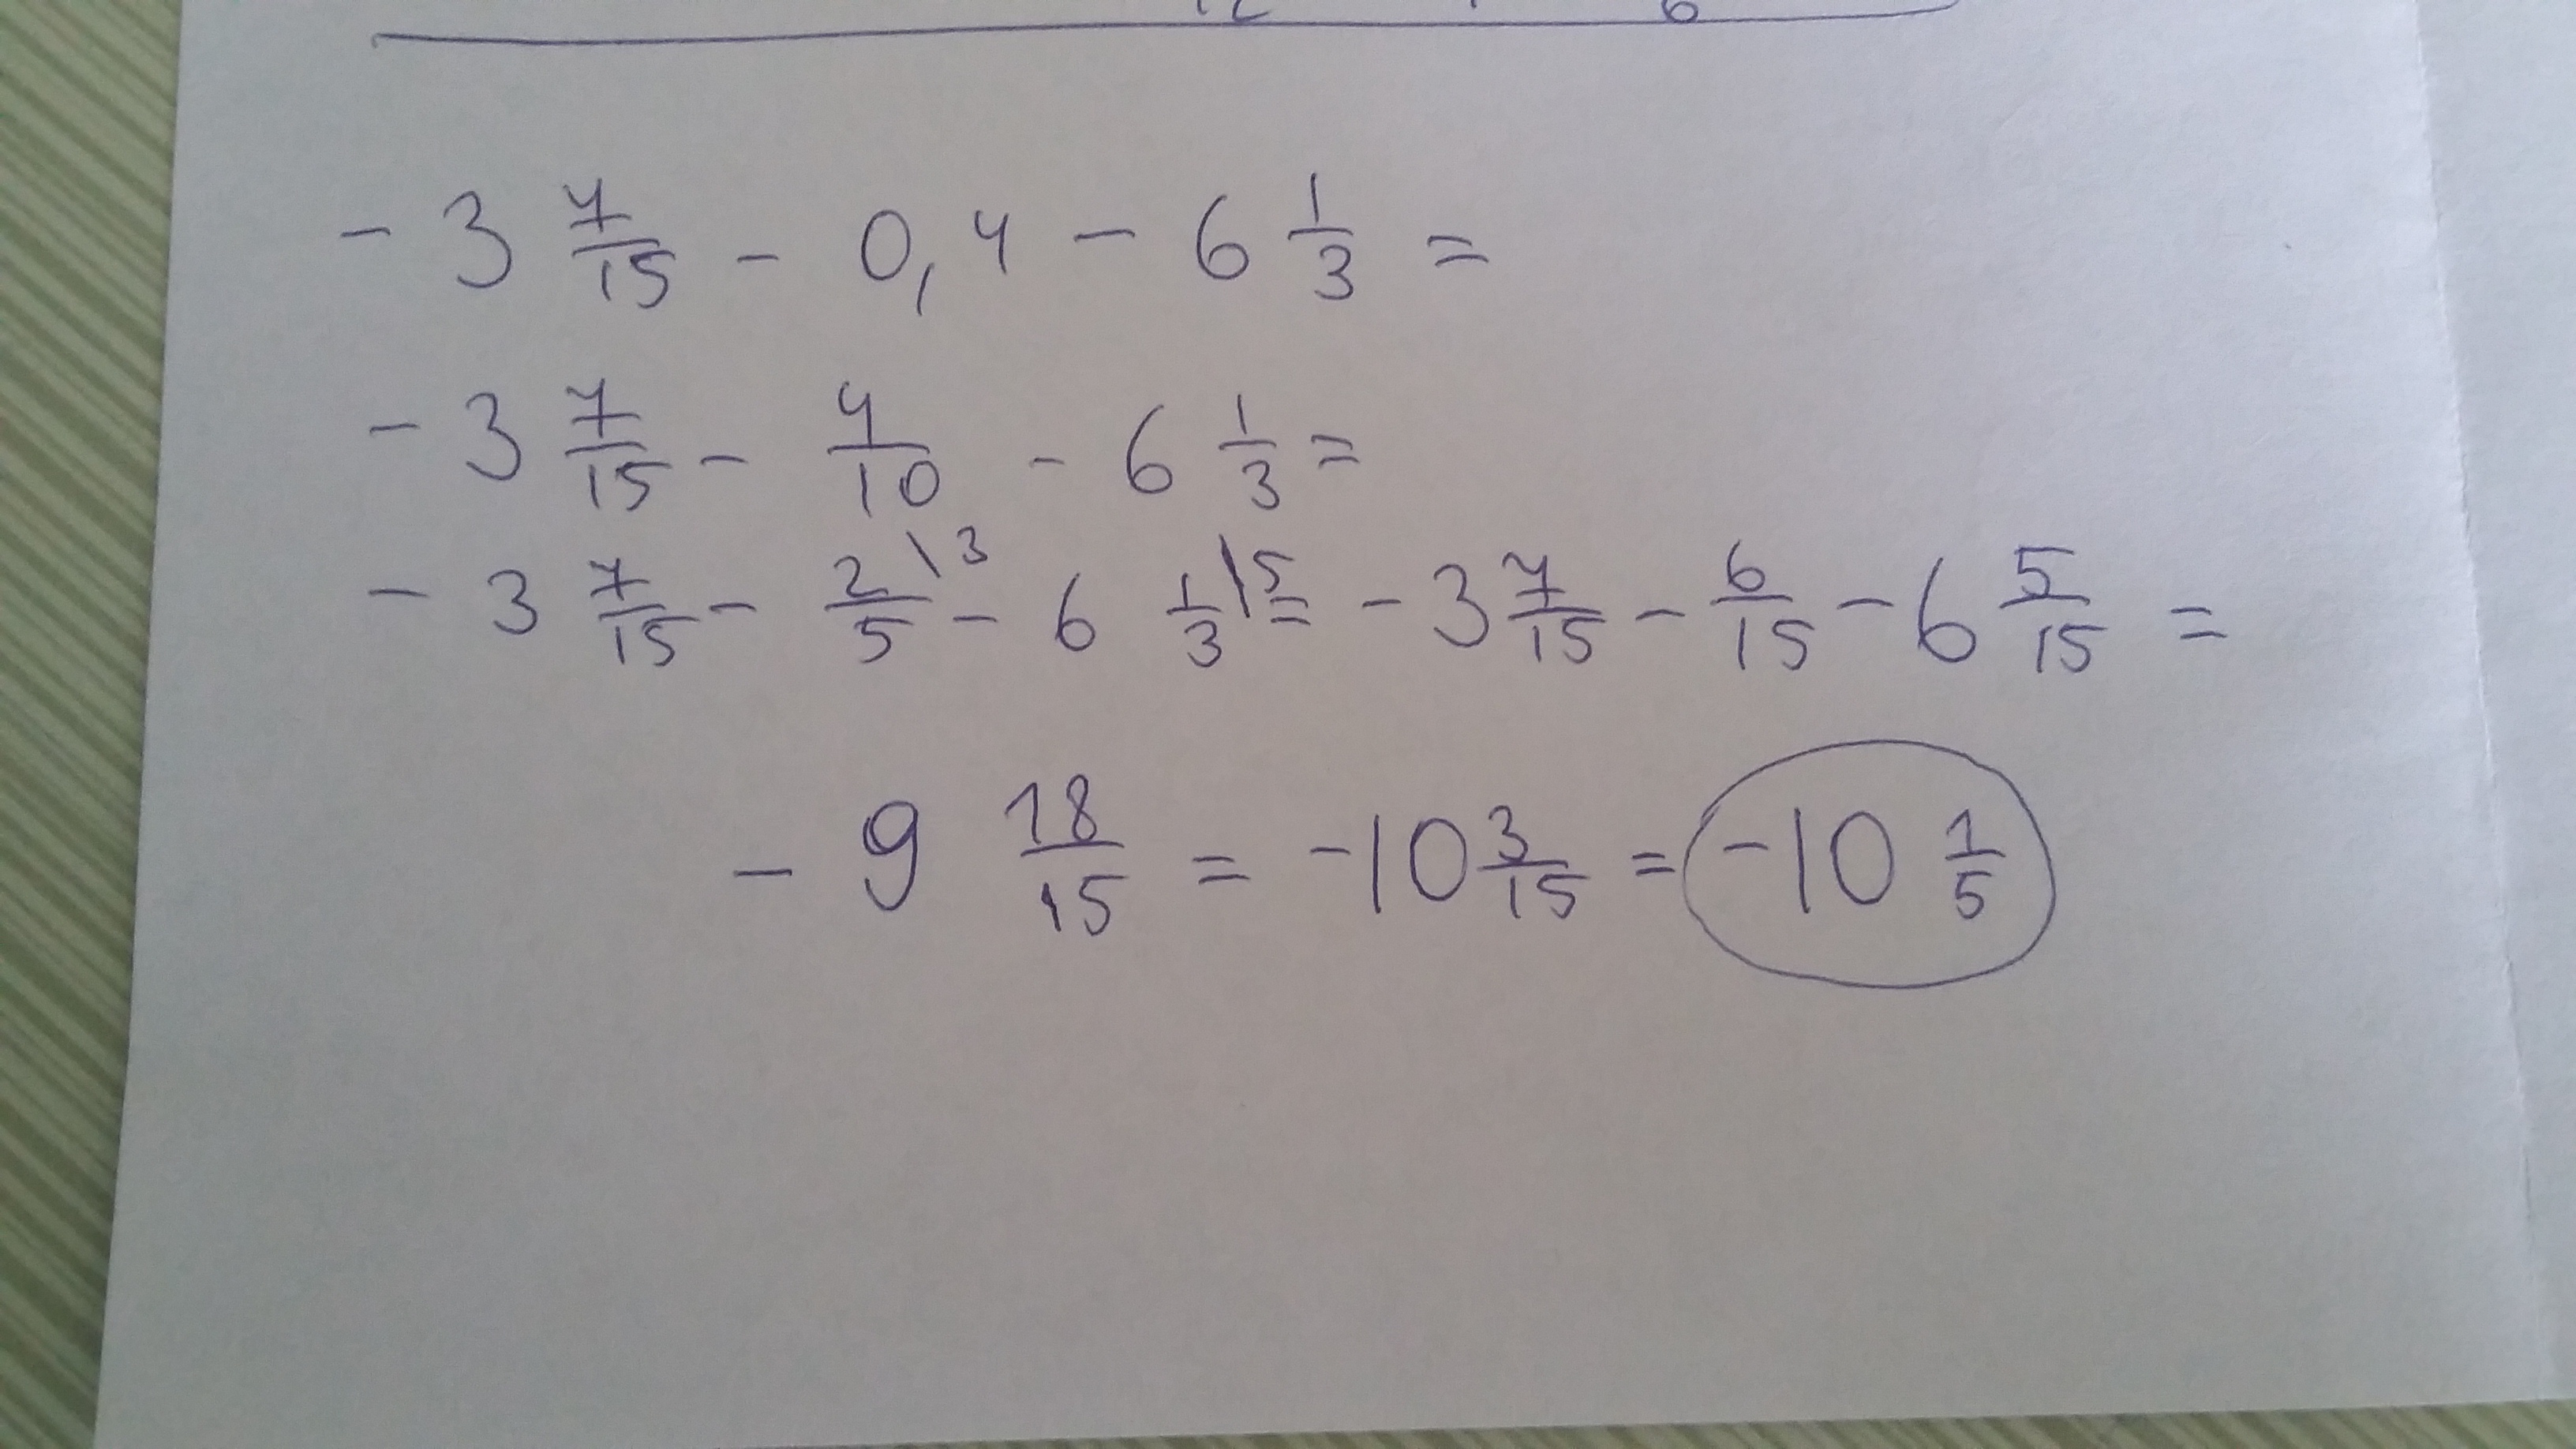 - 3 7/15 - 0,4 - 6 1/3 =
- 3 7/15 - 4/10 - 6 1/3 =
- 3 7/15 - 2/5 \3 - 6 1/3 \5 = - 3 7/15 - 6/15 - 6 5/15 =
- 9 18/15 = -10 3/15 = -10 1/5